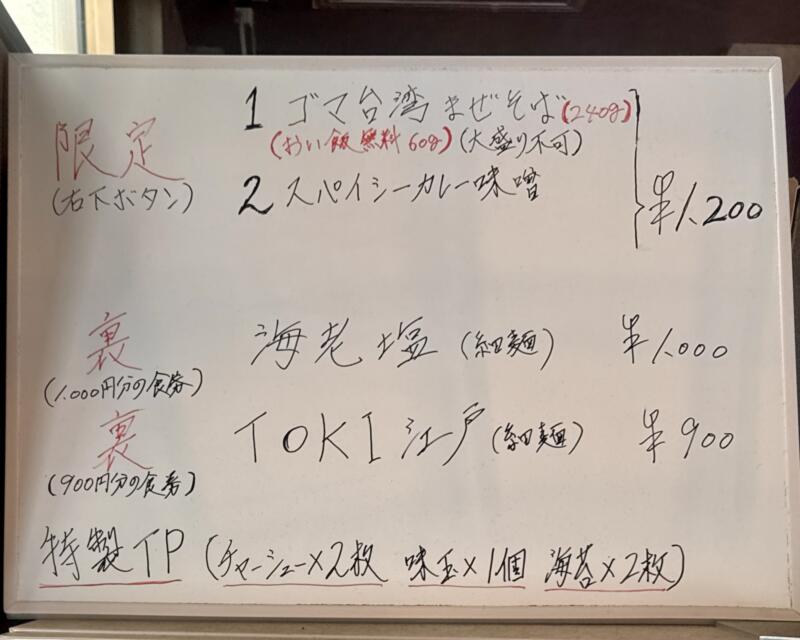 限定
(右下ボタン)
1 ゴマ台湾まぜそば(240g)
(おい飯無料60g)(大盛り不可)
2 スパイシーカレー味噌
¥1.200
裏
(1.000円分の食券)
海老塩(細麺) ¥1.000
裏
(900円分の食券)
TOKI江戸(細麺) ¥900
特製TP(チャーシュー×2枚 味玉×1個 海苔×2枚)